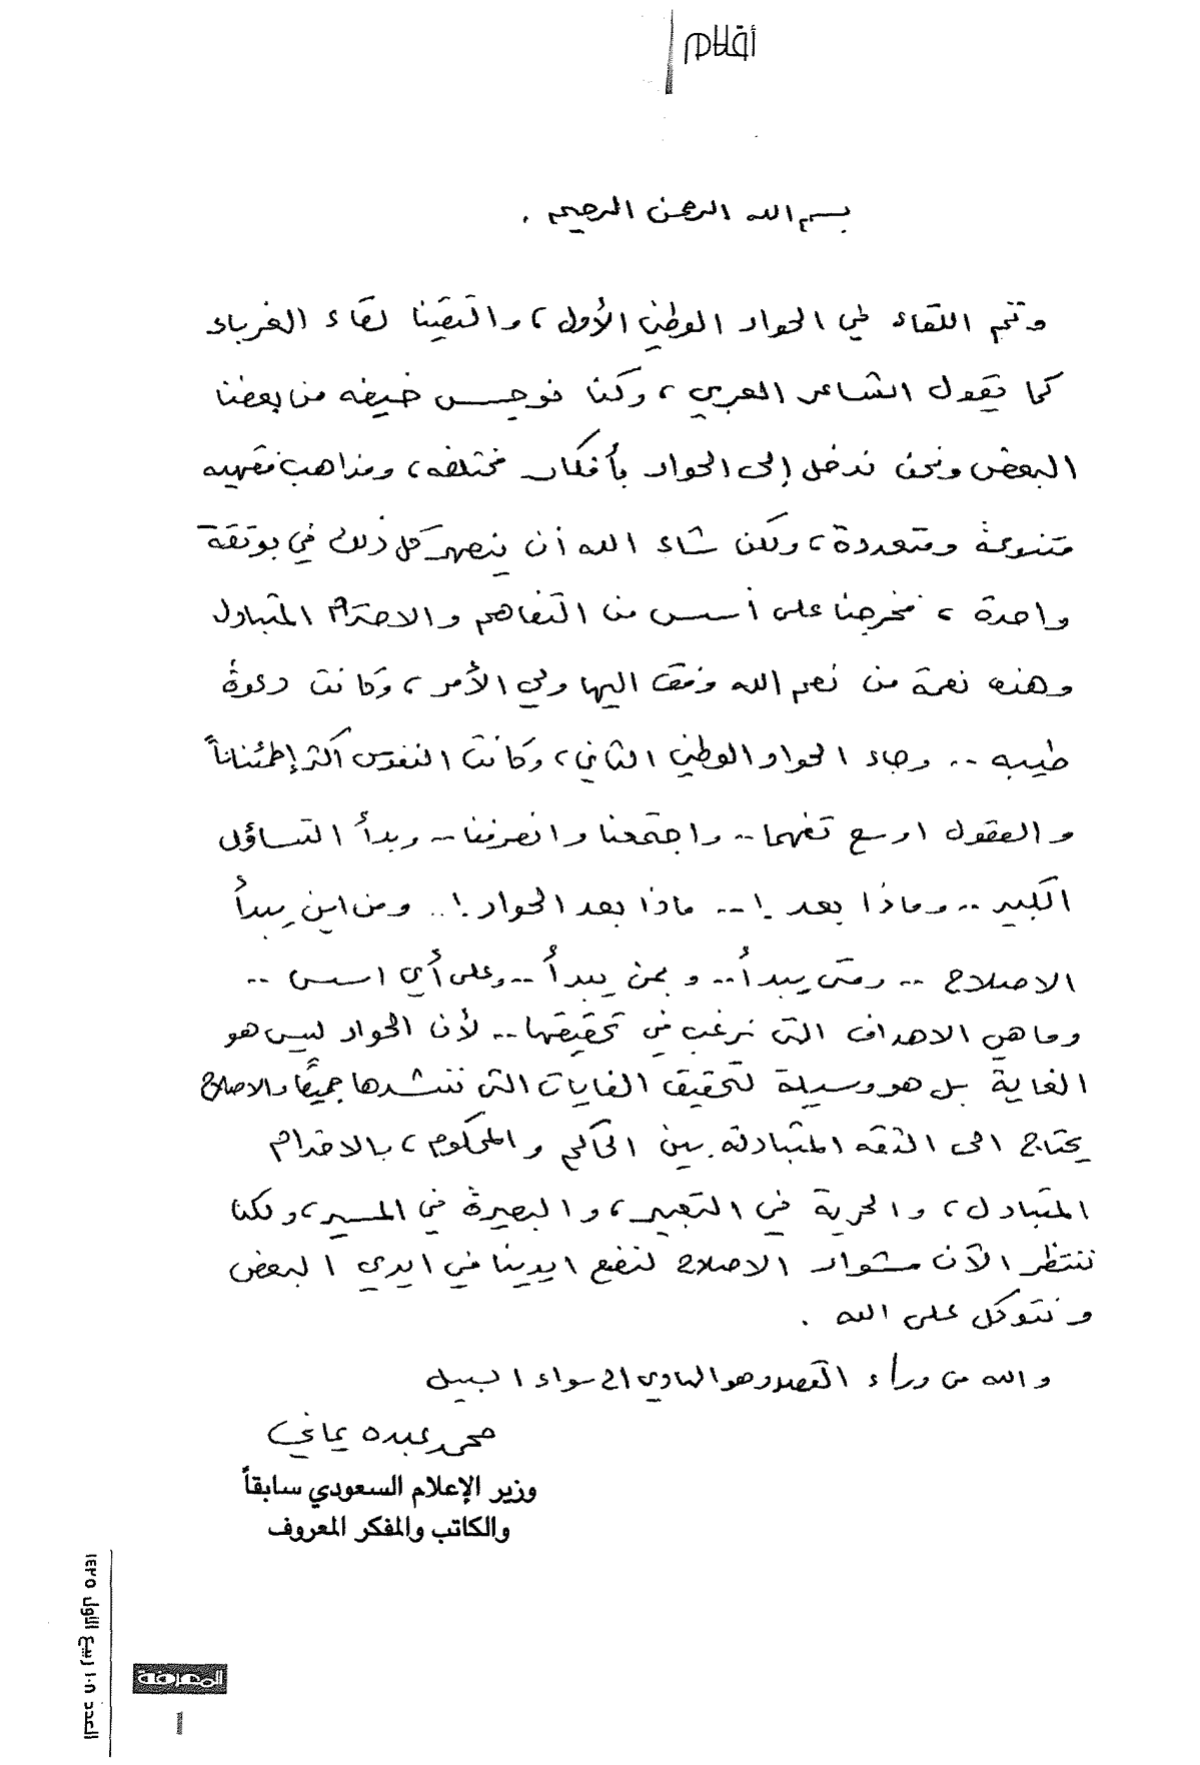 أقلام
بسم الله الرحمن الرحيم .
وتم اللقاء في الحوار الوطني الأول، والتقينا لقاء الغرباء
كما يقول الشاعر العربي، وكنا نوجس خيفه من بعضنا
البعض ونحن ندخل إلى الحوار بأفكار مختلفه، ومذاهب فقهيه
متنوعة ومتعددة، ولكن شاء الله أن ينصهر كل ذلك في بوتقة
واحدة، فخرجنا على أسس من التفاهم والاحترام المتبادل
وهذه نعمة من نعم الله وفق اليها ولي الأمر، وكانت دعوة
طيبه .. وجاء الحوار الوطني الثاني، وكانت النفوس أكثر إطمئناناً
والعقول اوسع تفهما.. واجتمعنا وانصرفنا.. وبدأ التساؤل
الكبير .. وماذا بعد !.. ماذا بعد الحوار !.. ومن اين يبدأ
الاصلاح .. ومتى يبدأ.. وبمن يبدأ.. وعلى أي اسس ..
وماهي الاهداف التي نرغب في تحقيقها.. لأن الحوار ليس هو
الغاية بل هو وسيلة لتحقيق الغايات التي ننشدها جميعًا والاصلاح
يحتاج الى الثقه المتبادلة بين الحاكم والمحكوم، بالاحترام
المتبادل، والحرية في التعبير، والبصيرة في المسير، ولكنا
ننتظر الآن مشوار الاصلاح لنضع ايدينا في ايدي البعض
ونتوكل على الله .
والله من وراء القصد وهو الهادي الى سواء السبيل
محمد عبده يماني
وزير الإعلام السعودي سابقاً
والكاتب والمفكر المعروف
العدد ١٠٨ ربيع الأول ١٤٢٥
المعرفة
١